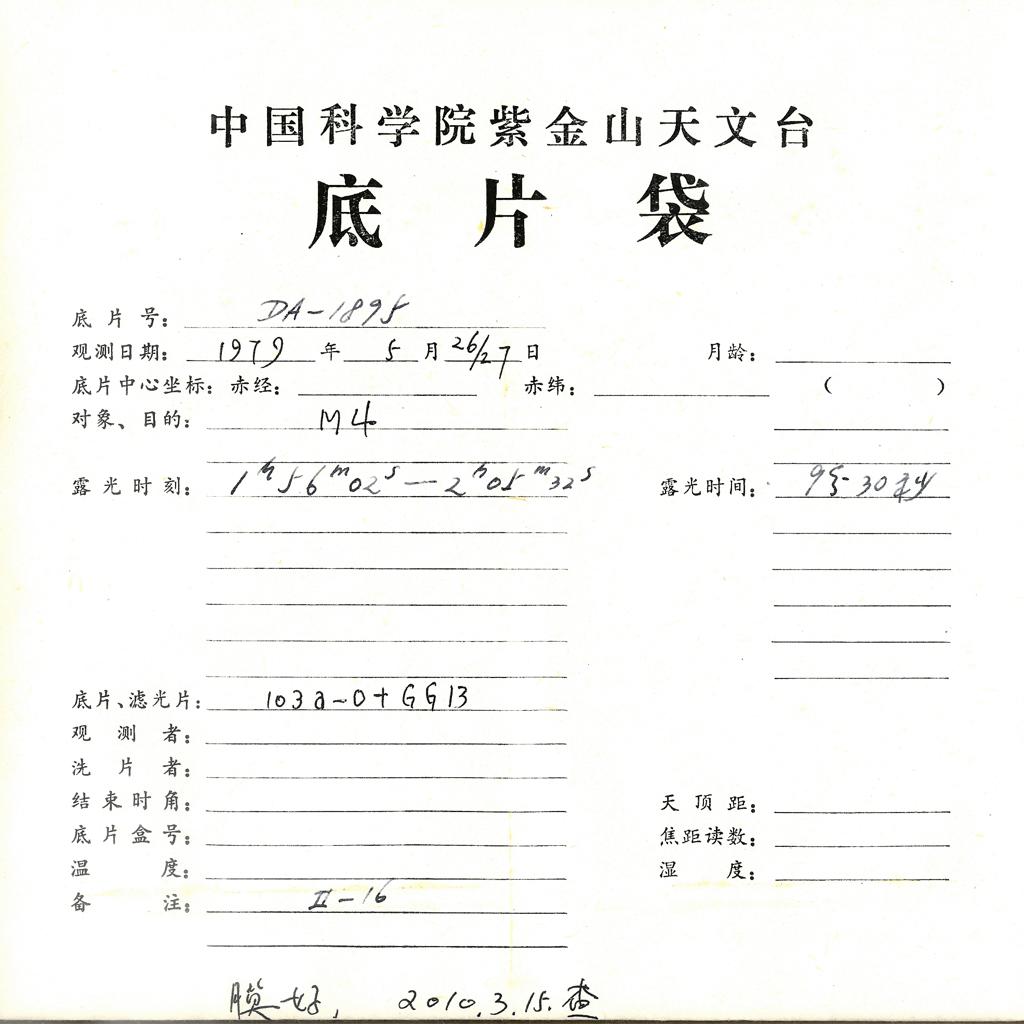 中国科学院紫金山天文台
底片袋
底片号： DA-1895
观测日期： 1979 年 5 月 26/27 日 月龄：
底片中心坐标：赤经： 赤纬： （ ）
对象、目的： M4
露光时刻： 1h56m02s — 2h05m32s 露光时间： 9分30秒
底片、滤光片： 103a-O+GG13
观测者：
洗片者：
结束时角： 天顶距：
底片盒号： 焦距读数：
温度： 湿度：
备注： II-16
膜好， 2010.3.15.查